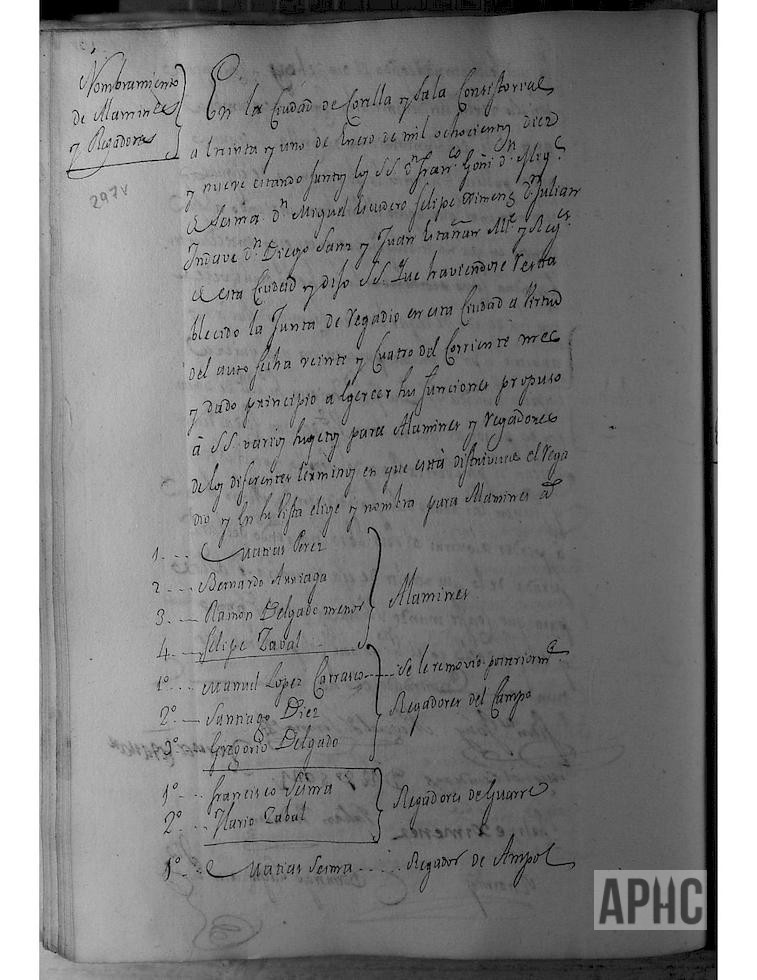 Nombramiento
de Alamines
y Regadores
297v
En la Ciudad de Corella y Sala Consistorial
a treinta y uno de Enero de mil ochocientos diez
y nueve estando juntos los SS. Dn. Franco. Goñi Dn. Migl.
de Sesma Dn. Miguel Escudero Felipe Ximenez Dn. Julian
Indave Dn. Diego Sanz y Juan Estañan Alle. y Regs.
de esta Ciudad y dijo SS. Que haviendose Resta
blecido la Junta de Regadio en esta Ciudad a Virtud
del auto fecha veinte y Cuatro del Corriente mes
y dado principio a egercer sus funciones propuso
á SS. varios sugetos para Alamines y Regadores
de los diferentes terminos en que está distrivuido el Rega
dio y en su lista elige y nombra para Alamines á
1. Matias Perez
2. Bernardo Arriaga
3. Ramon Delgado menor
4. Felipe Zabal
Alamines
1º. Manuel Lopez Carrasco se le removio posteriormte.
2º. Santiago Diez Regadores del Campo
3º. Gregorio Delgado
1º. Francisco Sesma Regadores de Guarre
2º. Ilario Zabal
1º. Matias Sesma Regador de Ampol
APHC